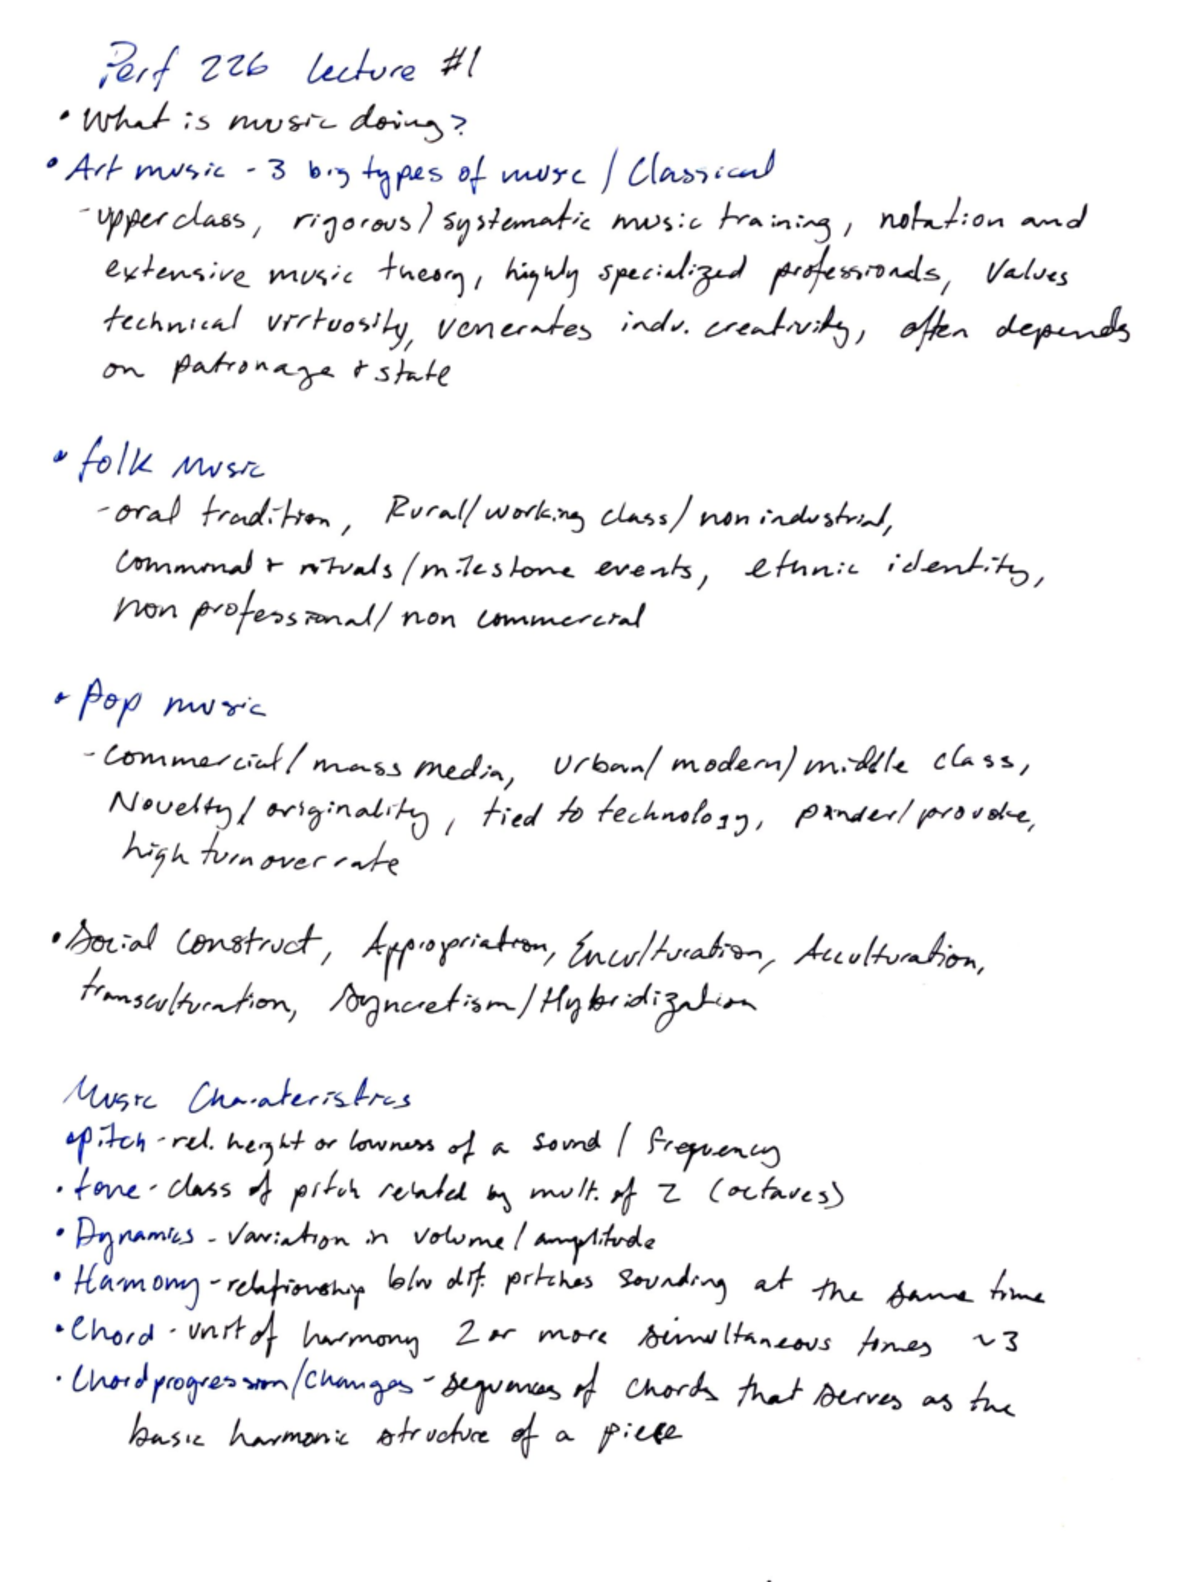 Perf 226 Lecture #1
• What is music doing?
• Art music - 3 big types of music / Classical
- upperclass, rigorous/systematic music training, notation and
extensive music theory, highly specialized professionals, Values
technical virtuosity, venerates indv. creativity, often depends
on patronage + state
• folk Music
- oral tradition, Rural/working class/non industrial,
Communal + rituals/milestone events, ethnic identity,
non professional/non commercial
• Pop music
- Commercial/mass media, Urban/modern/middle class,
Novelty/originality, tied to technology, pander/provoke,
high turnover rate
• Social Construct, Appropriation, Enculturation, Acculturation,
transculturation, Syncretism/Hybridization
Music Charateristics
• pitch - rel. height or lowness of a sound / frequency
• tone - class of pitch related by mult. of 2 (octaves)
• Dynamics - Variation in volume/amplitude
• Harmony - relationship b/w dif. pitches sounding at the same time
• Chord - unit of harmony 2 or more simultaneous tones ~3
• Chord progression/changes - sequences of chords that serves as the
basic harmonic structure of a piece